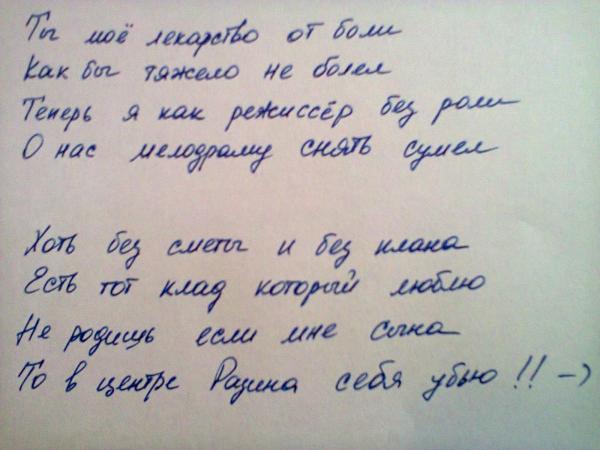 Ты моё лекарство от боли
Как бы тяжело не болел
Теперь я как режиссёр без роли
О нас мелодраму снять сумел
Хоть без сметы и без плана
Есть тот клад который люблю
Не родишь если мне сына
То в центре Разина себя убью !! –)